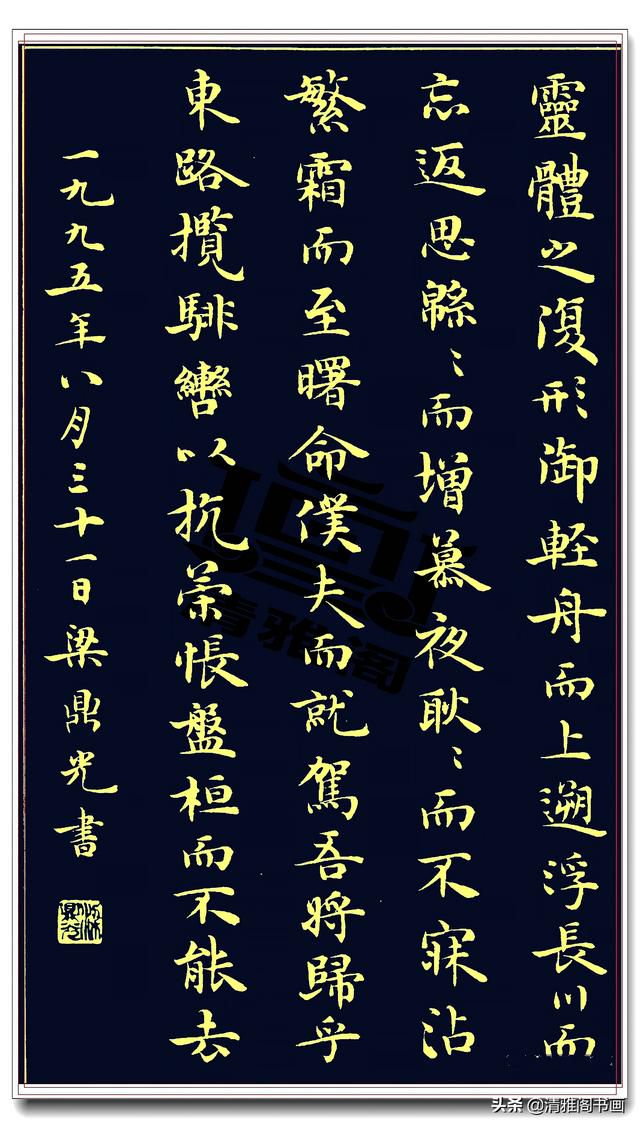 靈體之復形御輕舟而上遡浮長川而
忘返思緜〻而增慕夜耿〻而不寐沾
繁霜而至曙命僕夫而就駕吾將歸乎
東路攬騑轡以抗策悵盤桓而不能去
一九九五年八月三十一日梁鼎光書
清雅阁
头条 @清雅阁书画